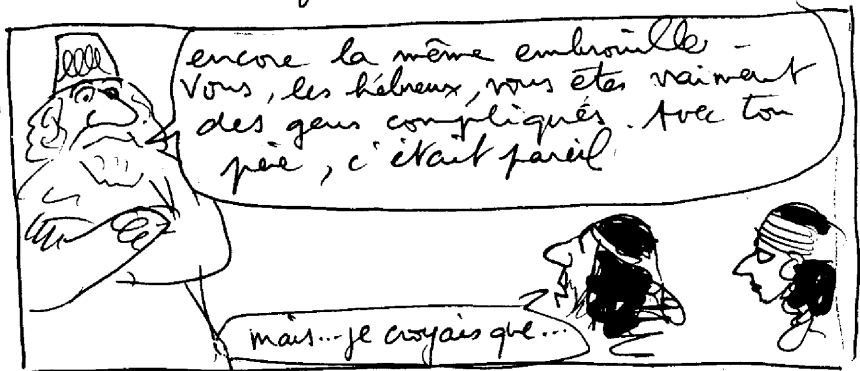 encore la même embrouille -
Vous, les hébreux, vous êtes vraiment
des gens compliqués. Avec ton
père, c'était pareil
mais... je croyais que...